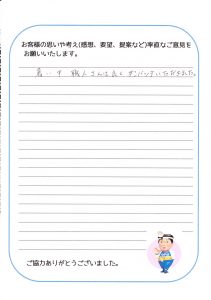 お客様の思いや考え(感想、要望、提案など)率直なご意見を
お願いいたします。
暑い中 職人さんは良く ガンバッていただきました。
ご協力ありがとうございました。